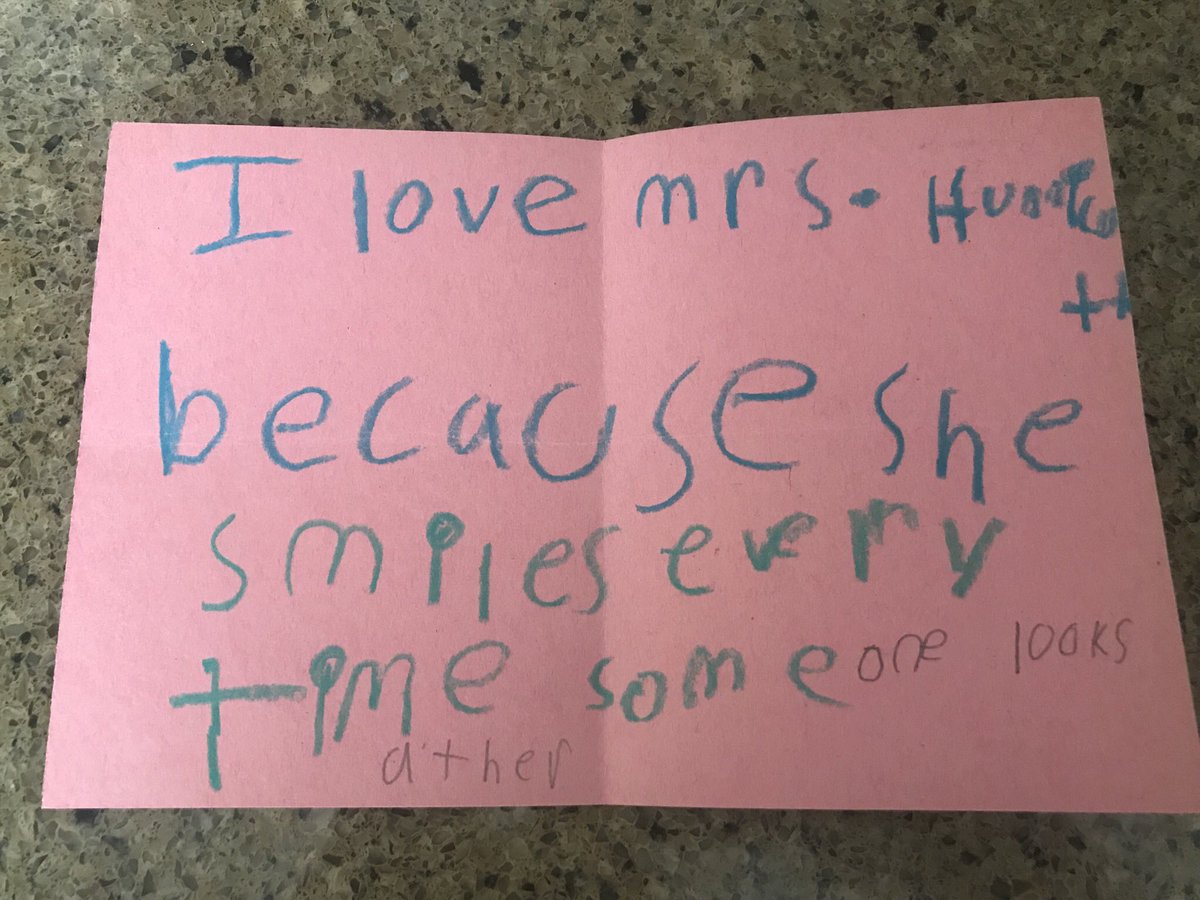 I love mrs.
tt
because she
smiles every
time someone looks
at her